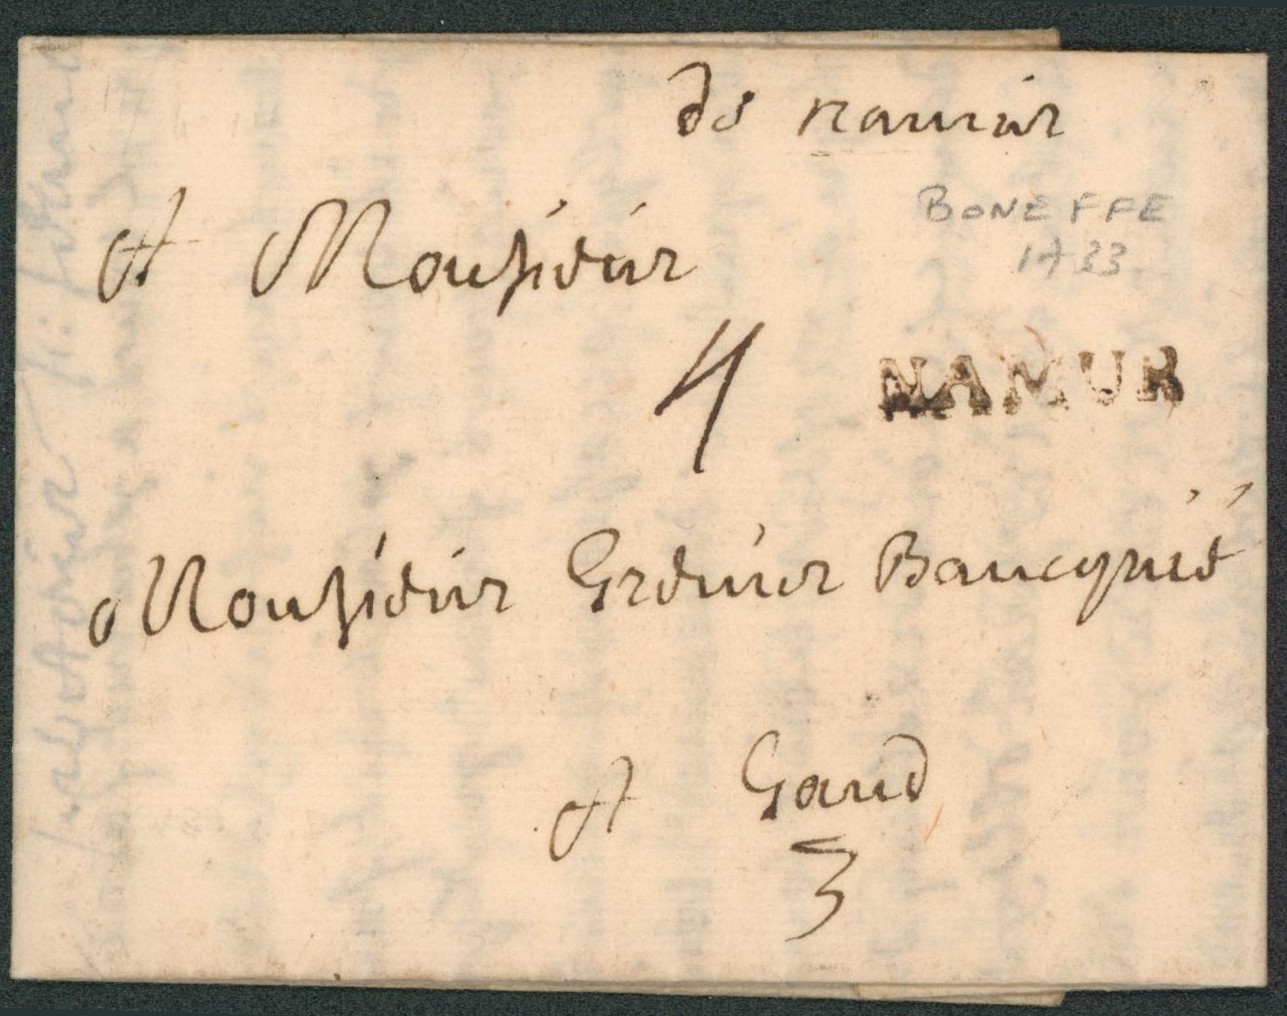 de namur
A Monsieur
BONEFFE
1733
4
NAMUR
Monsieur Grenier Bancquié
A Gand
3